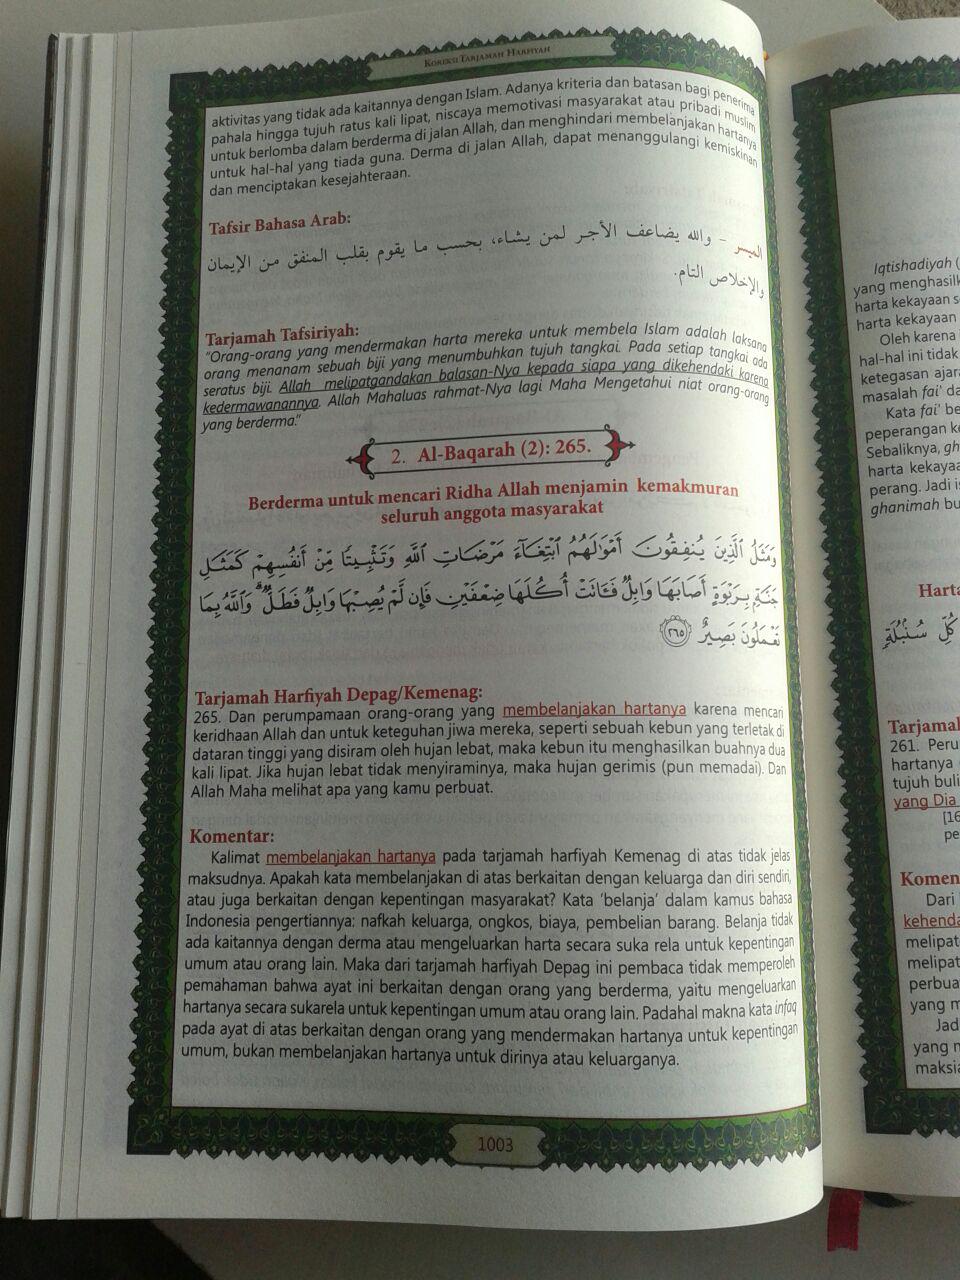 KOREKSI TARJAMAH HARFIYAH
aktivitas yang tidak ada kaitannya dengan Islam. Adanya kriteria dan batasan bagi penerima
pahala hingga tujuh ratus kali lipat, niscaya memotivasi masyarakat atau pribadi muslim
untuk berlomba dalam berderma di jalan Allah, dan menghindari membelanjakan hartanya
untuk hal-hal yang tiada guna. Derma di jalan Allah, dapat menanggulangi kemiskinan
dan menciptakan kesejahteraan.
Tafsir Bahasa Arab:
الميسر – والله يضاعف الأجر لمن يشاء، بحسب ما يقوم بقلب المنفق من الإيمان
والإخلاص التام.
Tarjamah Tafsiriyah:
"Orang-orang yang mendermakan harta mereka untuk membela Islam adalah laksana
orang menanam sebuah biji yang menumbuhkan tujuh tangkai. Pada setiap tangkai ada
seratus biji. Allah melipatgandakan balasan-Nya kepada siapa yang dikehendaki karena
kedermawanannya. Allah Mahaluas rahmat-Nya lagi Maha Mengetahui niat orang-orang
yang berderma."
2. Al-Baqarah (2): 265.
Berderma untuk mencari Ridha Allah menjamin kemakmuran
seluruh anggota masyarakat
وَمَثَلُ ٱلَّذِينَ يُنفِقُونَ أَمْوَٰلَهُمُ ٱبْتِغَآءَ مَرْضَاتِ ٱللَّهِ وَتَثْبِيتًا مِّنْ أَنفُسِهِمْ كَمَثَلِ
جَنَّةٍۭ بِرَبْوَةٍ أَصَابَهَا وَابِلٌ فَـَٔاتَتْ أُكُلَهَا ضِعْفَيْنِ فَإِن لَّمْ يُصِبْهَا وَابِلٌ فَطَلٌّ ۗ وَٱللَّهُ بِمَا
تَعْمَلُونَ بَصِيرٌ ٢٦٥
Tarjamah Harfiyah Depag/Kemenag:
265. Dan perumpamaan orang-orang yang membelanjakan hartanya karena mencari
keridhaan Allah dan untuk keteguhan jiwa mereka, seperti sebuah kebun yang terletak di
dataran tinggi yang disiram oleh hujan lebat, maka kebun itu menghasilkan buahnya dua
kali lipat. Jika hujan lebat tidak menyiraminya, maka hujan gerimis (pun memadai). Dan
Allah Maha melihat apa yang kamu perbuat.
Komentar:
Kalimat membelanjakan hartanya pada tarjamah harfiyah Kemenag di atas tidak jelas
maksudnya. Apakah kata membelanjakan di atas berkaitan dengan keluarga dan diri sendiri,
atau juga berkaitan dengan kepentingan masyarakat? Kata 'belanja' dalam kamus bahasa
Indonesia pengertiannya: nafkah keluarga, ongkos, biaya, pembelian barang. Belanja tidak
ada kaitannya dengan derma atau mengeluarkan harta secara suka rela untuk kepentingan
umum atau orang lain. Maka dari tarjamah harfiyah Depag ini pembaca tidak memperoleh
pemahaman bahwa ayat ini berkaitan dengan orang yang berderma, yaitu mengeluarkan
hartanya secara sukarela untuk kepentingan umum atau orang lain. Padahal makna kata infaq
pada ayat di atas berkaitan dengan orang yang mendermakan hartanya untuk kepentingan
umum, bukan membelanjakan hartanya untuk dirinya atau keluarganya.
1003
Iqtishadiyah (
yang menghasil
harta kekayaan
harta kekayaan
Oleh karena
hal-hal ini tidak
ketegasan ajar
masalah fai' da
Kata fai' be
peperangan
Sebaliknya,
harta kekaya
perang. Jadi
ghanimah bu
Hart
كُلِّ سُنۢبُلَةٍ
Tarjamah
261. Peru
hartanya
tujuh buli
yang Dia
[16
pe
Komen
Dari
kehenda
melipat
melipat
perbua
yang m
Jad
yang m
maksia